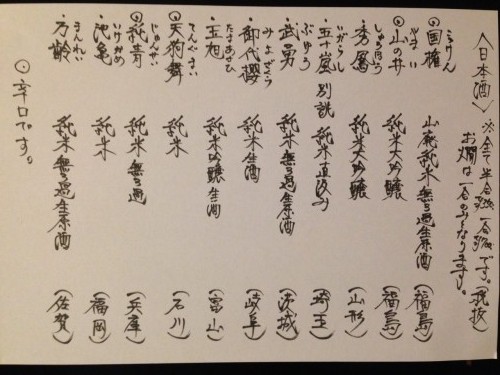 〈日本酒〉 ※全て半合 一合 です。(税抜)
お燗は一合のみとなります。
こっけん
◎国権 山廃純米無ろ過生原酒 (福島)
やまのい
◎山の井 純米大吟醸 (福島)
しゅうほう
・秀鳳 純米大吟醸 (山形)
いがらし
・五十嵐 別誂 純米直汲み (埼玉)
ぶゆう
・武勇 純米無ろ過生原酒 (茨城)
みよざくら
・御代櫻 純米生酒 (岐阜)
たまあさひ
・玉旭 純米吟醸生酒 (富山)
てんぐまい
◎天狗舞 純米 (石川)
じゅんせい
◎純青 純米無ろ過 (兵庫)
いけかめ
・池亀 純米 (福岡)
まんれい
・万齢 純米無ろ過生原酒 (佐賀)
◎辛口です。